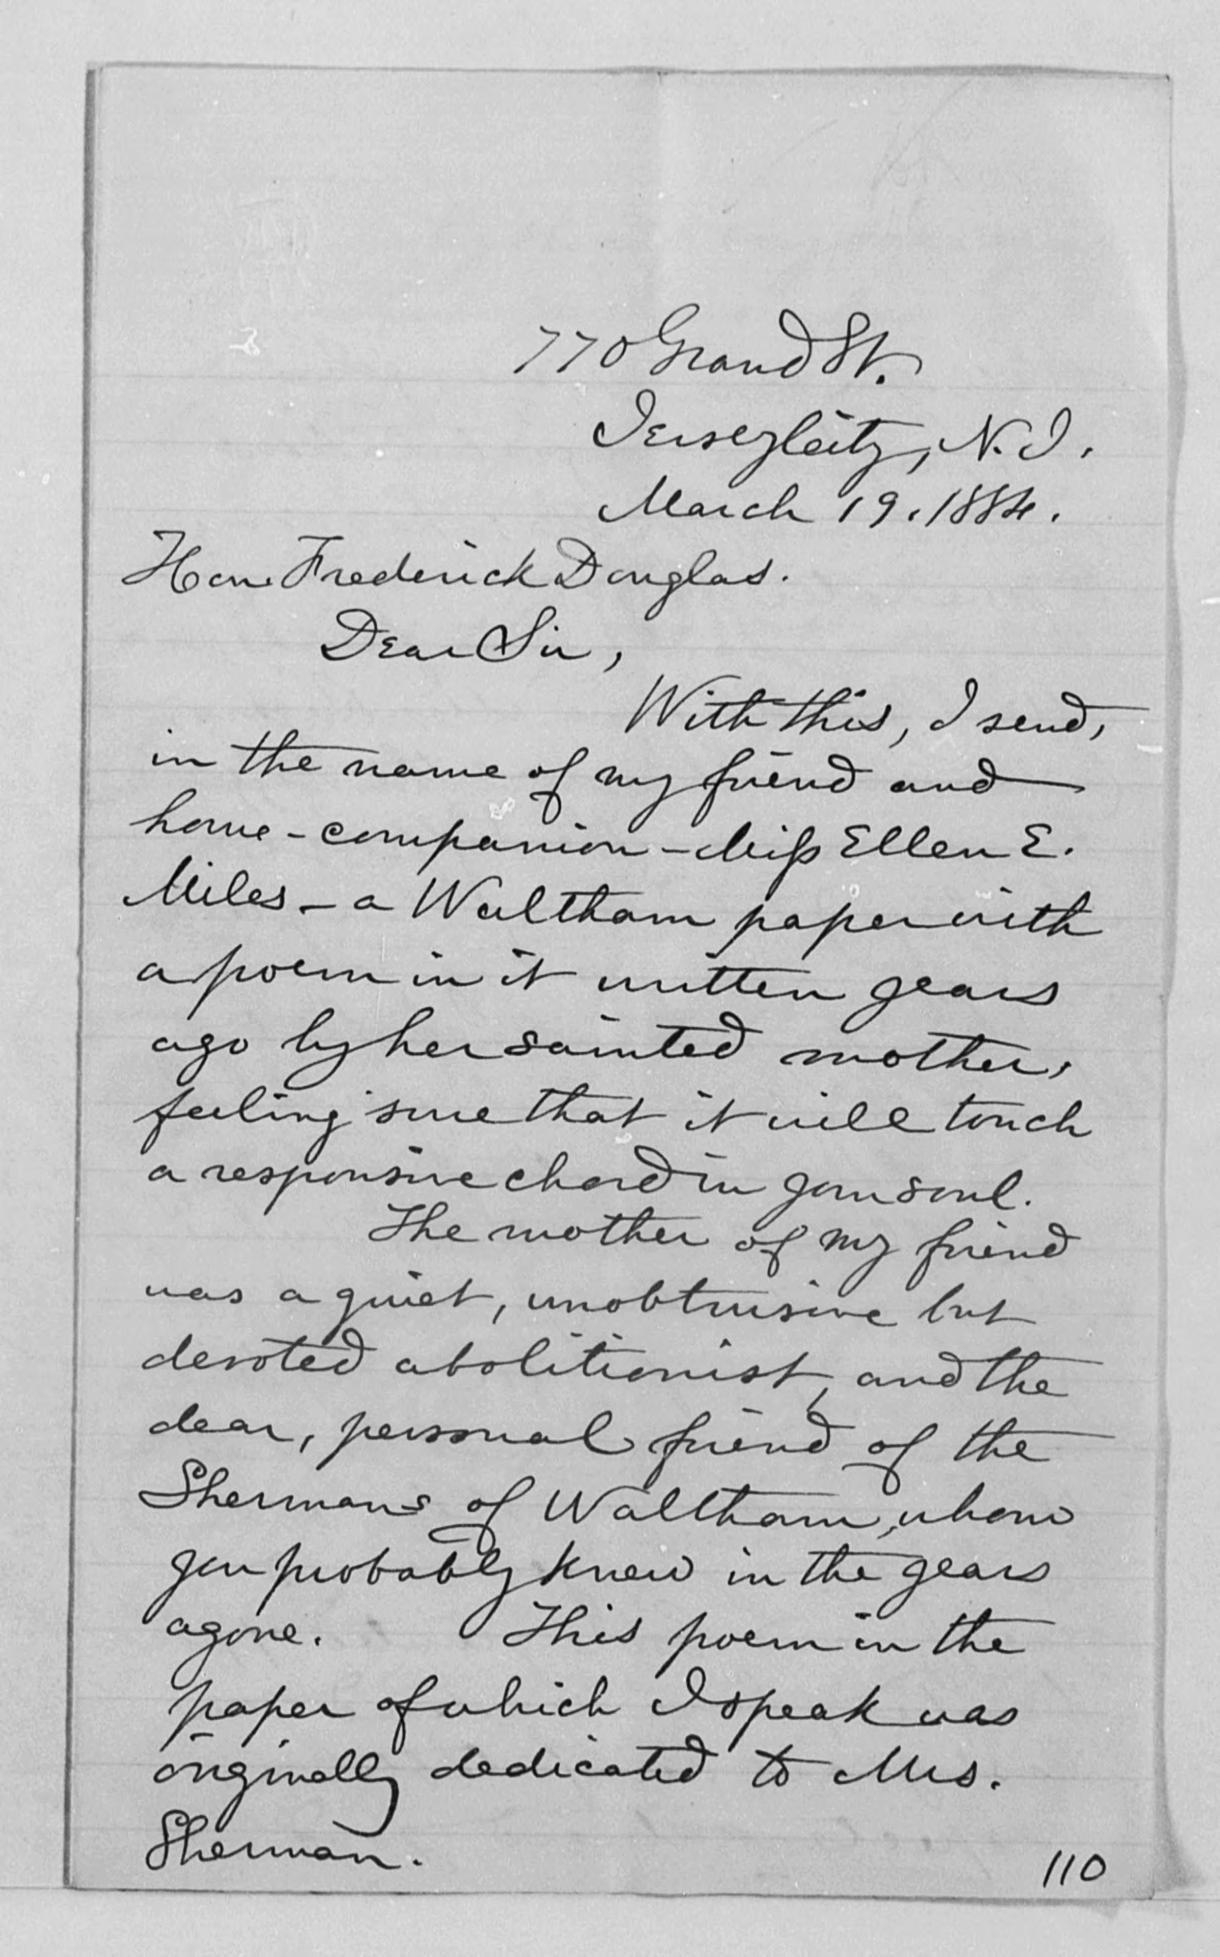 770 Grand St.
Jersey City, N.J.
March 19. 1884.
Hon. Frederick Douglas.
Dear Sir,
With this, I send,
in the name of my friend and
home-companion - Miss Ellen E.
Miles - a Waltham paper with
a poem in it written years
ago by her sainted mother,
feeling sure that it will touch
a responsive chord in your soul.
The mother of my friend
was a quiet, unobtrusive but
devoted abolitionist, and the
dear, personal friend of the
Shermans of Waltham, whom
you probably knew in the years
agone. This poem in the
paper of which I speak was
originally dedicated to Mrs.
Sherman.
110